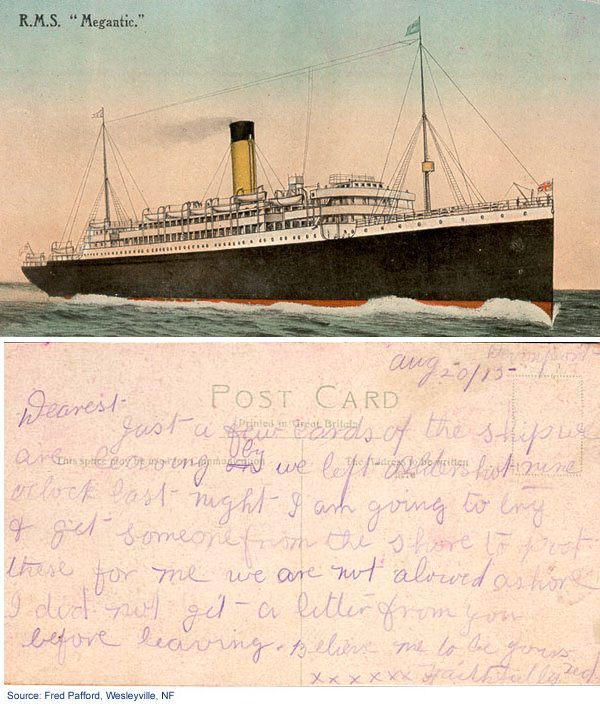 R.M.S. "Megantic."
Devonport
Aug 20/15
POST CARD
Printed in Great Britain
This space may be used for communication
The address to be written
here
Dearest-
Just a few cards of the ship we
are going by we left aldershot nine
oclock last night I am going to try
& get someone from the shore to post
these for me we are not alowed ashore
I did not get a letter from you
before leaving. Believe me to be yours
xxxxxx Faithfully
Source: Fred Pafford, Wesleyville, NF